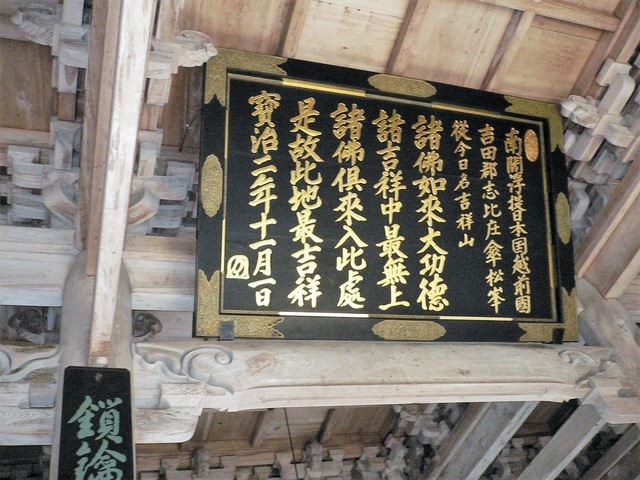 南閻浮提日本国越前國
吉田郡志比庄傘松峯
從今日名吉祥山
諸佛如來大功德
諸吉祥中最無上
諸佛俱來入此處
是故此地最吉祥
寶治二年十一月一日
鎖鑰